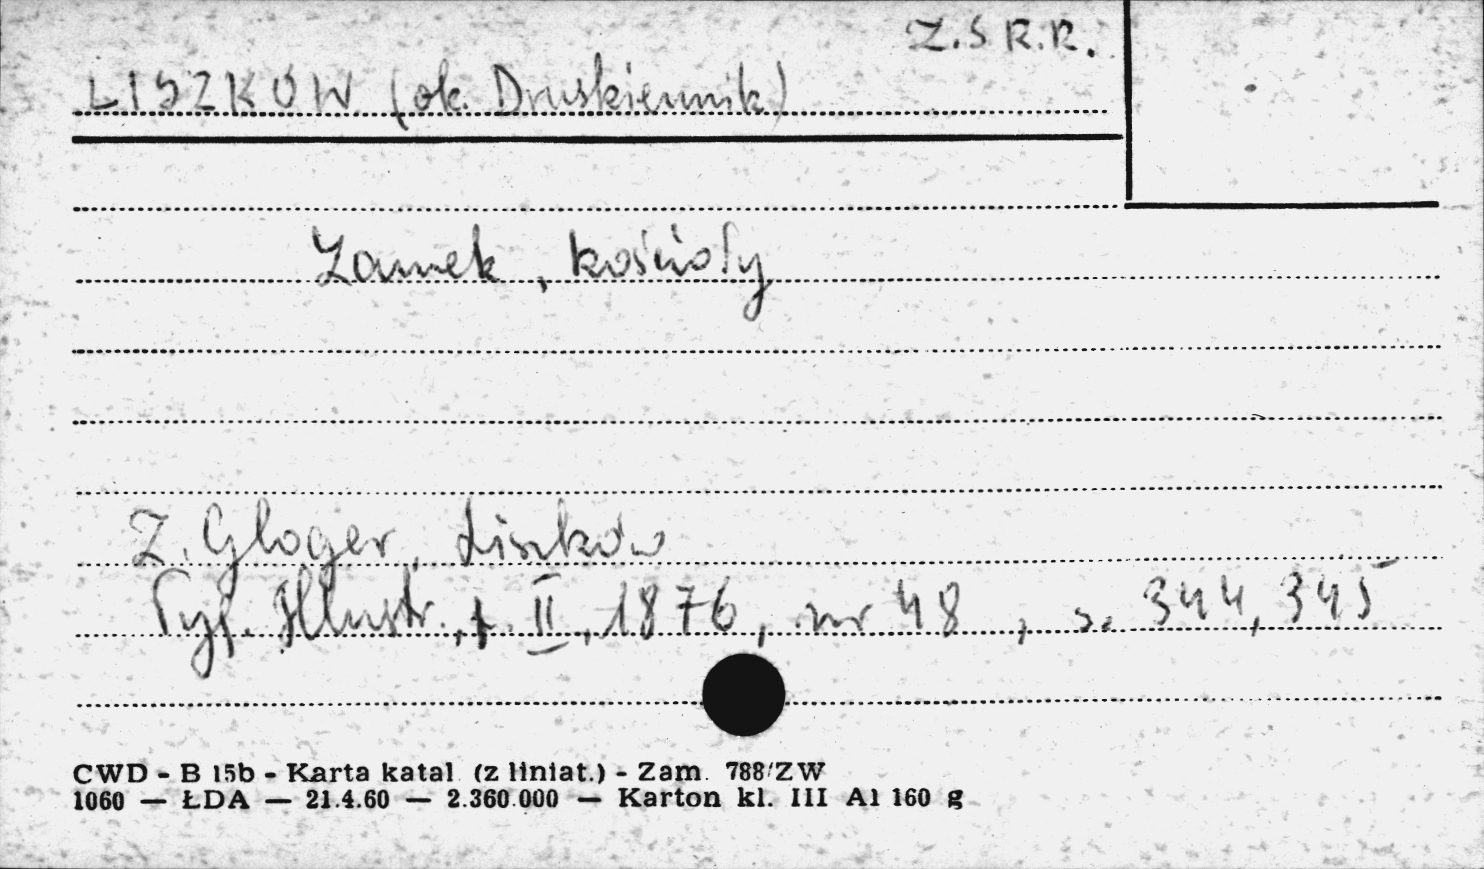 Z.S.R.R.
LISZKÓW (ok. Druskiennik)
Zamek, kościoły
Z. Gloger, Liszków
Tyg. Illustr., t. II, 1876, nr 48, s. 344, 345
CWD - B 15b - Karta katal. (z liniat.) - Zam. 788/ZW
1060 — ŁDA — 21.4.60 — 2.360.000 — Karton kl. III A1 160 g